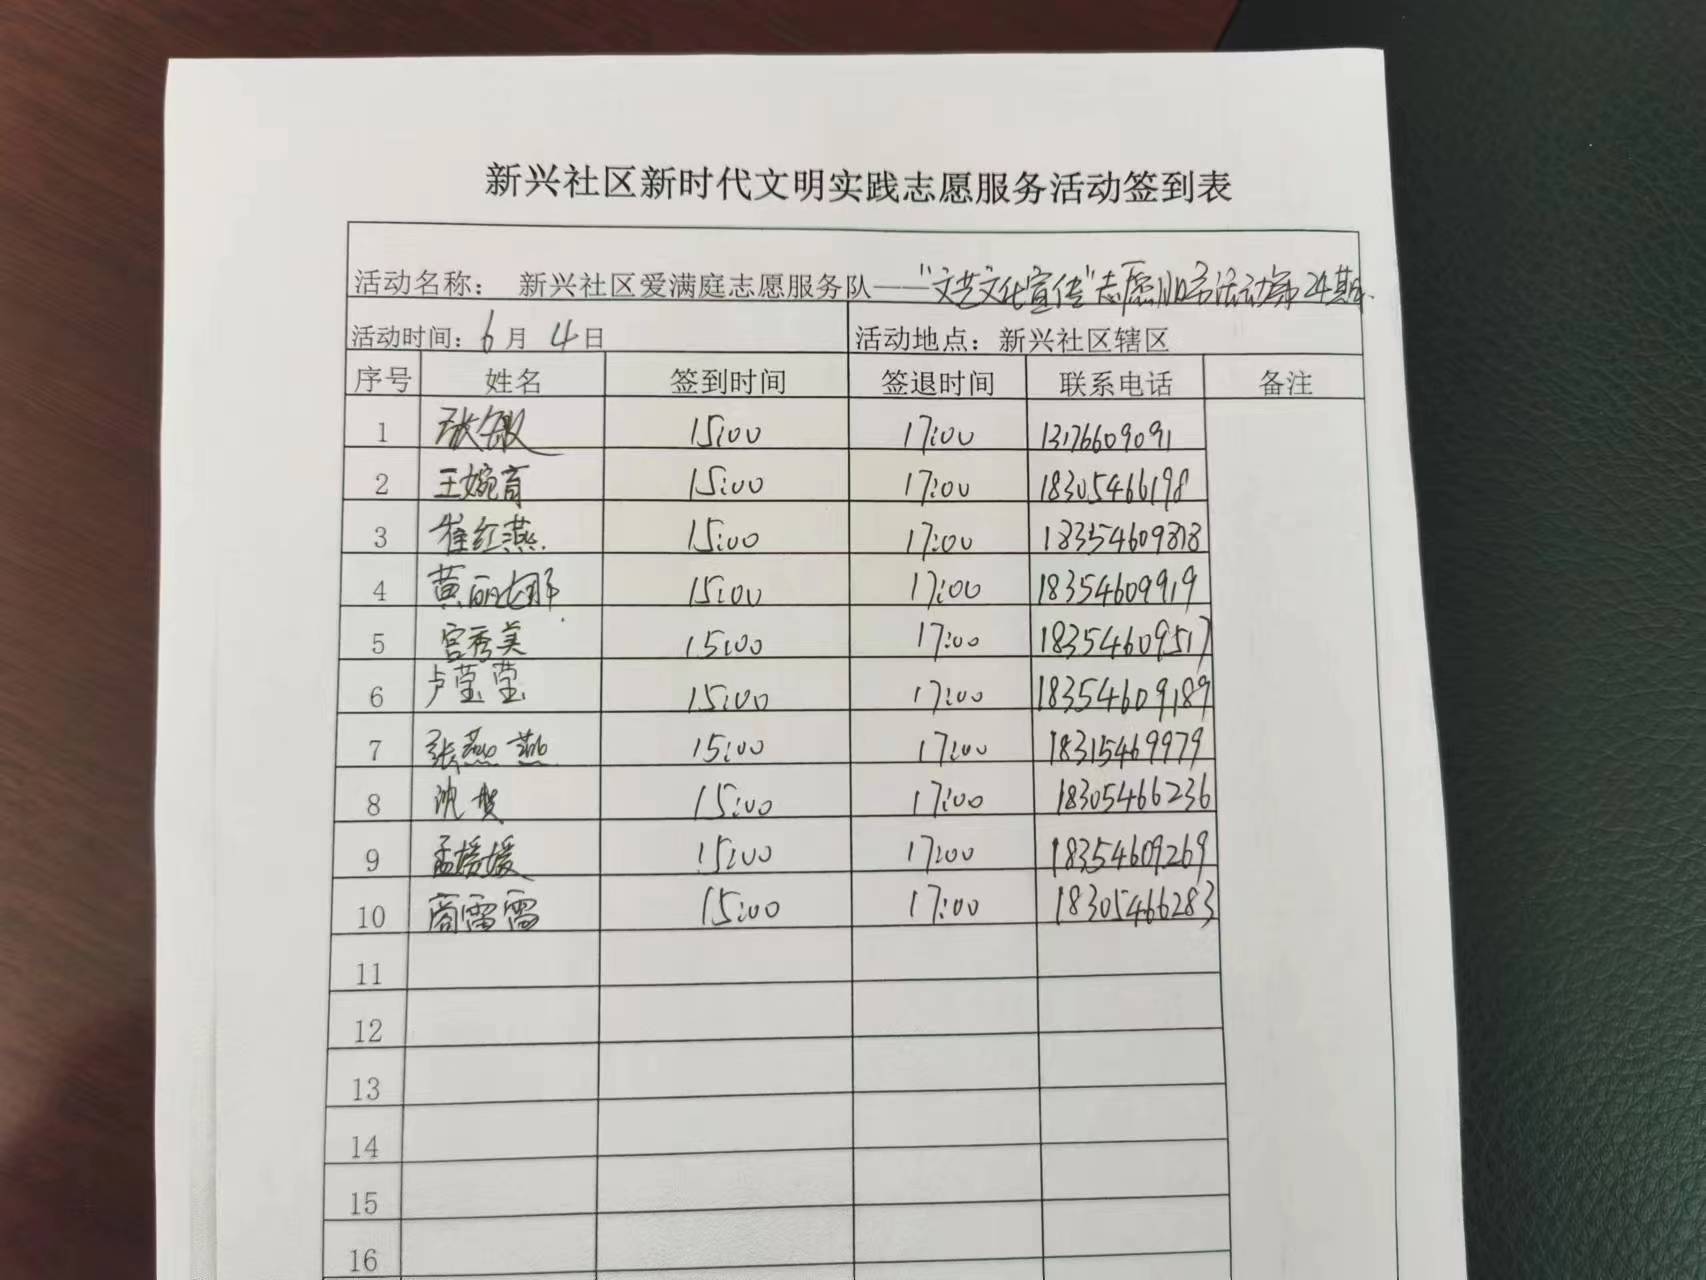 新兴社区新时代文明实践志愿服务活动签到表
活动名称： 新兴社区爱满庭志愿服务队——"文艺文化宣传"志愿服务活动第24期
活动时间：6月 4日 活动地点：新兴社区辖区
序号 姓名 签到时间 签退时间 联系电话 备注
1 张敏 15:00 17:00 13176609091
2 王婉育 15:00 17:00 18305466198
3 崔红燕 15:00 17:00 18354609878
4 黄丽娜 15:00 17:00 18354609919
5 宫秀美 15:00 17:00 18354609517
6 卢莹莹 15:00 17:00 18354609189
7 张燕燕 15:00 17:00 18315469979
8 沈 15:00 17:00 18305466236
9 孟媛媛 15:00 17:00 18354609269
10 商雷雷 15:00 17:00 18305466283
11
12
13
14
15
16